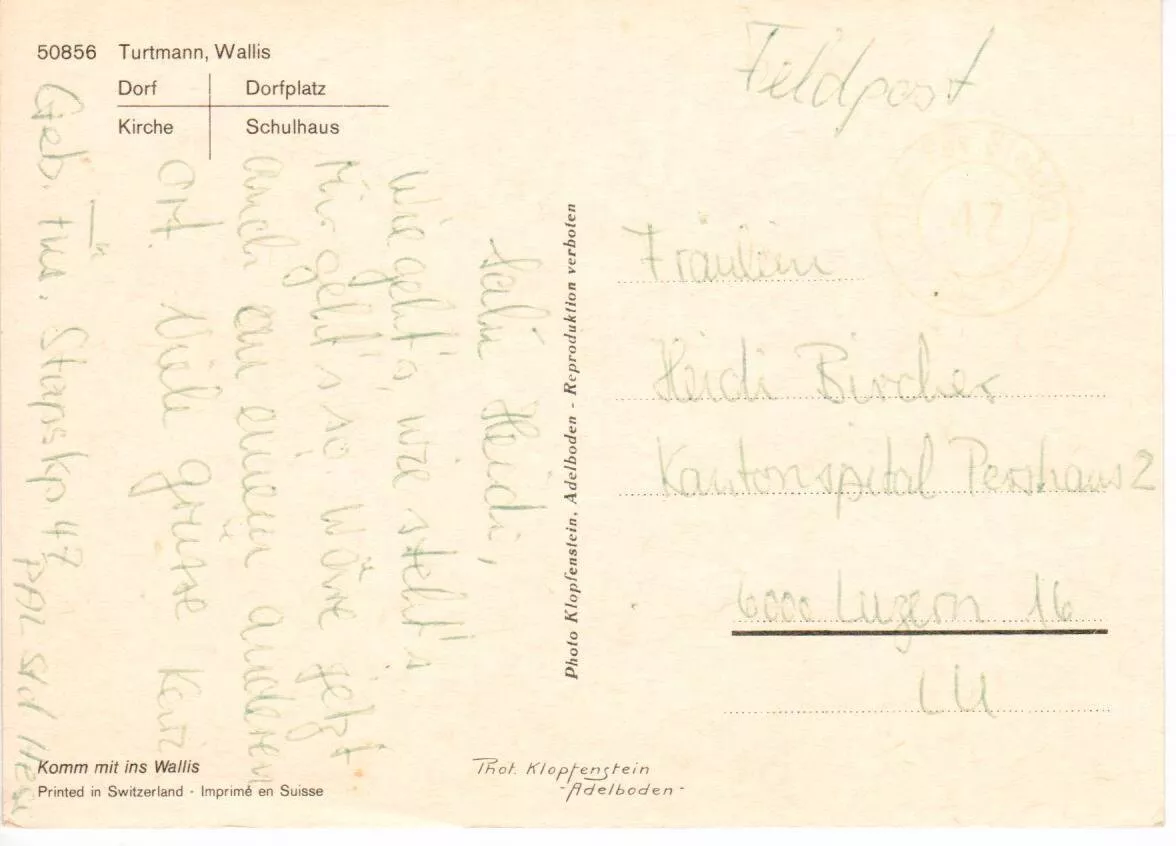 50856 Turtmann, Wallis
Dorf Dorfplatz
Kirche Schulhaus
Feldpost
47
Salü Heidi,
Wie geht's, wie steht's
Mir geht's so. Wäre jetzt
auch an einem anderen
Ort. Viele grüsse
Geb. Füs. Stabskp 47
Photo Klopfenstein, Adelboden - Reproduktion verboten
Fräulein
Heidi Bircher
Kantonspital Pershaus 2
6000 Luzern 16
LU
Komm mit ins Wallis
Printed in Switzerland - Imprimé en Suisse
Phot. Klopfenstein
-Adelboden-